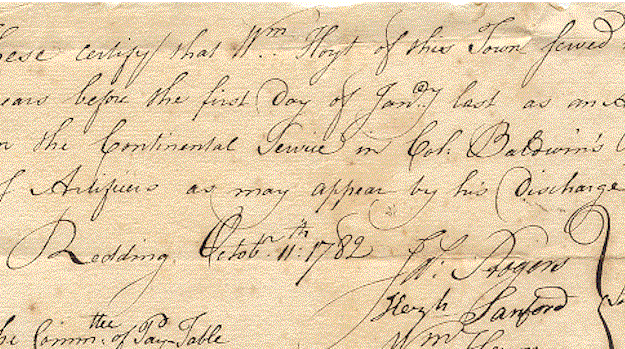 hese certify that Wm. Hoyt of this Town served
ears before the first Day of Jany. last as an A
n the Continental Service in Col. Baldwin's
f Artificers as may appear by his Discharge
Redding. Octobr. 11th: 1782
Rogers
Hezh Sanford
he Commttee of Pay Table
Wm